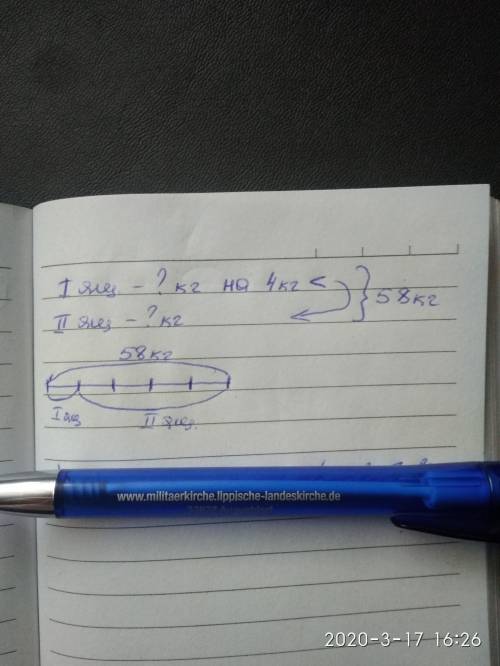 I ящ - ? кг на 4кг < } 58кг
II ящ - ? кг
58кг
I ящ II ящ.
www.militaerkirche.lippische-landeskirche.de
2020-3-17 16:26